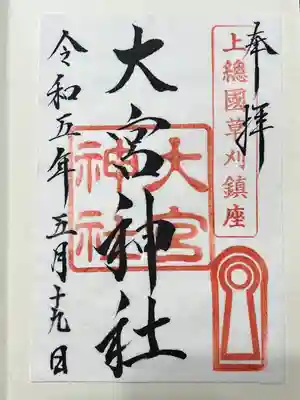 奉拝
上總國草刈鎮座
大宮神社
大宮
神社
令和五年 五月十九日